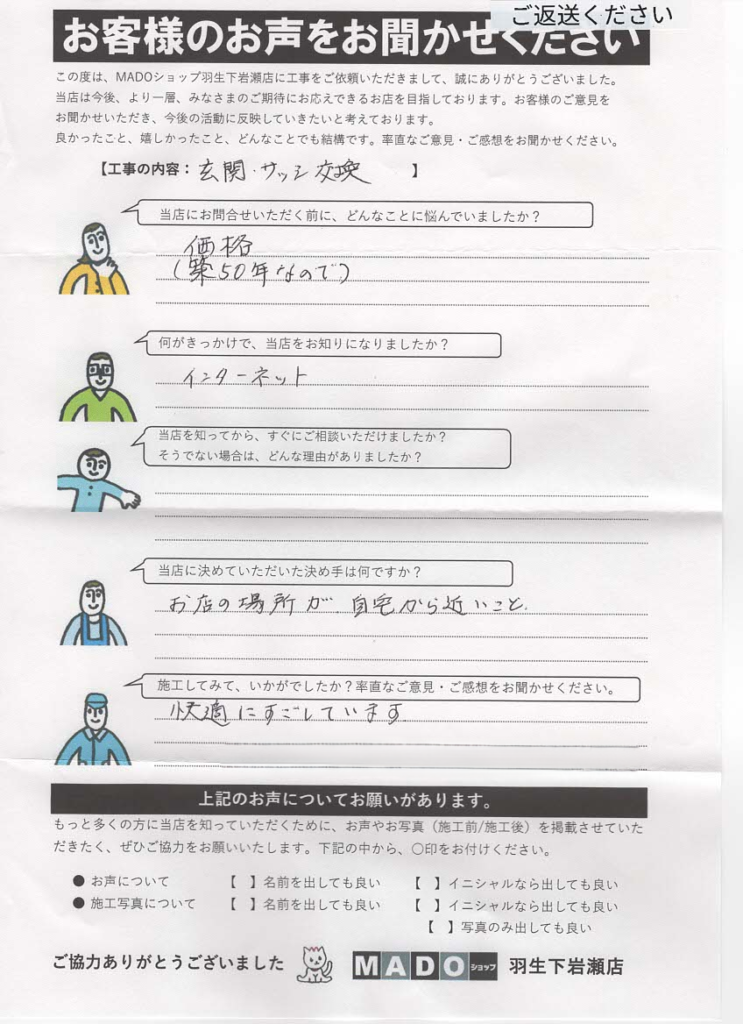 ご返送ください
お客様のお声をお聞かせください
この度は、MADOショップ羽生下岩瀬店に工事をご依頼いただきまして、誠にありがとうございました。
当店は今後、より一層、みなさまのご期待にお応えできるお店を目指しております。お客様のご意見を
お聞かせいただき、今後の活動に反映していきたいと考えております。
良かったこと、嬉しかったこと、どんなことでも結構です。率直なご意見・ご感想をお聞かせください。
【工事の内容：玄関・サッシ交換 】
当店にお問合せいただく前に、どんなことに悩んでいましたか？
価格
（築50年なので）
何がきっかけで、当店をお知りになりましたか？
インターネット
当店を知ってから、すぐにご相談いただけましたか？
そうでない場合は、どんな理由がありましたか？
当店に決めていただいた決め手は何ですか？
お店の場所が、自宅から近いこと.
施工してみて、いかがでしたか？率直なご意見・ご感想をお聞かせください。
快適にすごしています
上記のお声についてお願いがあります。
もっと多くの方に当店を知っていただくために、お声やお写真（施工前/施工後）を掲載させていた
だきたく、ぜひご協力をお願いいたします。下記の中から、〇印をお付けください。
● お声について 【 】名前を出しても良い 【 】イニシャルなら出しても良い
● 施工写真について 【 】名前を出しても良い 【 】イニシャルなら出しても良い
【 】写真のみ出しても良い
ご協力ありがとうございました MADOショップ 羽生下岩瀬店